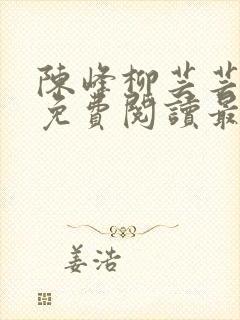 陳峰柳芸芸
免費閱讀最
姜浩